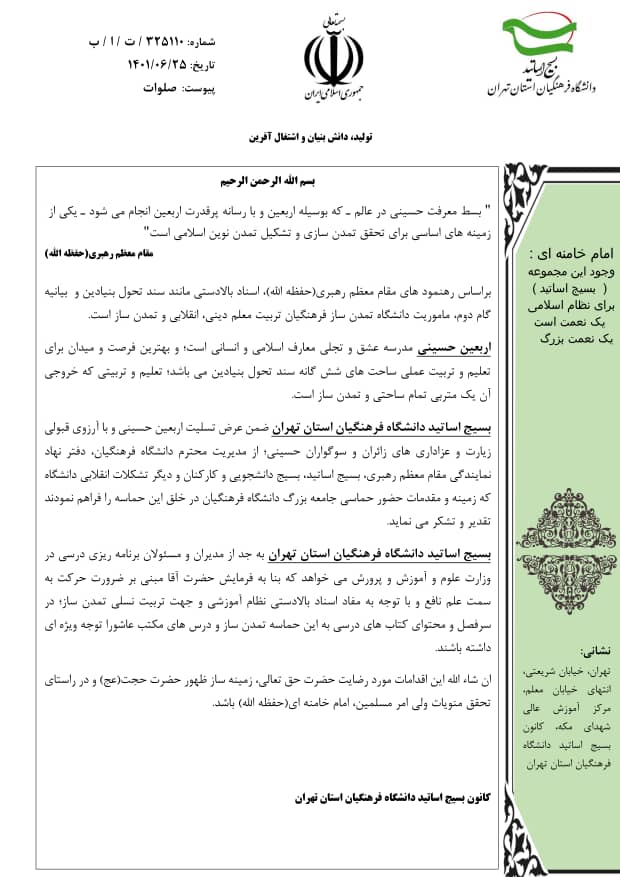 بسمه‌تعالی
جمهوری اسلامی ایران
بسیج اساتید
دانشگاه فرهنگیان استان تهران
شماره: ۳۲۵۱۱۰ / ت / ا / ب
تاریخ: ۱۴۰۱/۰۶/۲۵
پیوست: صلوات
تولید، دانش بنیان و اشتغال آفرین
بسم الله الرحمن الرحیم
" بسط معرفت حسینی در عالم ـ که بوسیله اربعین و با رسانه پرقدرت اربعین انجام می شود ـ یکی از
زمینه های اساسی برای تحقق تمدن سازی و تشکیل تمدن نوین اسلامی است"
مقام معظم رهبری(حفظه الله)
براساس رهنمود های مقام معظم رهبری(حفظه الله)، اسناد بالادستی مانند سند تحول بنیادین و بیانیه
گام دوم، ماموریت دانشگاه تمدن ساز فرهنگیان تربیت معلم دینی، انقلابی و تمدن ساز است.
اربعین حسینی مدرسه عشق و تجلی معارف اسلامی و انسانی است؛ و بهترین فرصت و میدان برای
تعلیم و تربیت عملی ساحت های شش گانه سند تحول بنیادین می باشد؛ تعلیم و تربیتی که خروجی
آن یک متربی تمام ساحتی و تمدن ساز است.
بسیج اساتید دانشگاه فرهنگیان استان تهران ضمن عرض تسلیت اربعین حسینی و با آرزوی قبولی
زیارت و عزاداری های زائران و سوگواران حسینی؛ از مدیریت محترم دانشگاه فرهنگیان، دفتر نهاد
نمایندگی مقام معظم رهبری، بسیج اساتید، بسیج دانشجویی و کارکنان و دیگر تشکلات انقلابی دانشگاه
که زمینه و مقدمات حضور حماسی جامعه بزرگ دانشگاه فرهنگیان در خلق این حماسه را فراهم نمودند
تقدیر و تشکر می نماید.
بسیج اساتید دانشگاه فرهنگیان استان تهران به جد از مدیران و مسئولان برنامه ریزی درسی در
وزارت علوم و آموزش و پرورش می خواهد که بنا به فرمایش حضرت آقا مبنی بر ضرورت حرکت به
سمت علم نافع و با توجه به مفاد اسناد بالادستی نظام آموزشی و جهت تربیت نسلی تمدن ساز؛ در
سرفصل و محتوای کتاب های درسی به این حماسه تمدن ساز و درس های مکتب عاشورا توجه ویژه ای
داشته باشند.
ان شاء الله این اقدامات مورد رضایت حضرت حق تعالی، زمینه ساز ظهور حضرت حجت(عج) و در راستای
تحقق منویات ولی امر مسلمین، امام خامنه ای(حفظه الله) باشد.
کانون بسیج اساتید دانشگاه فرهنگیان استان تهران
امام خامنه ای :
وجود این مجموعه
( بسیج اساتید )
برای نظام اسلامی
یک نعمت است
یک نعمت بزرگ
نشانی:
تهران، خیابان شریعتی،
انتهای خیابان معلم،
مرکز آموزش عالی
شهدای مکه، کانون
بسیج اساتید دانشگاه
فرهنگیان استان تهران